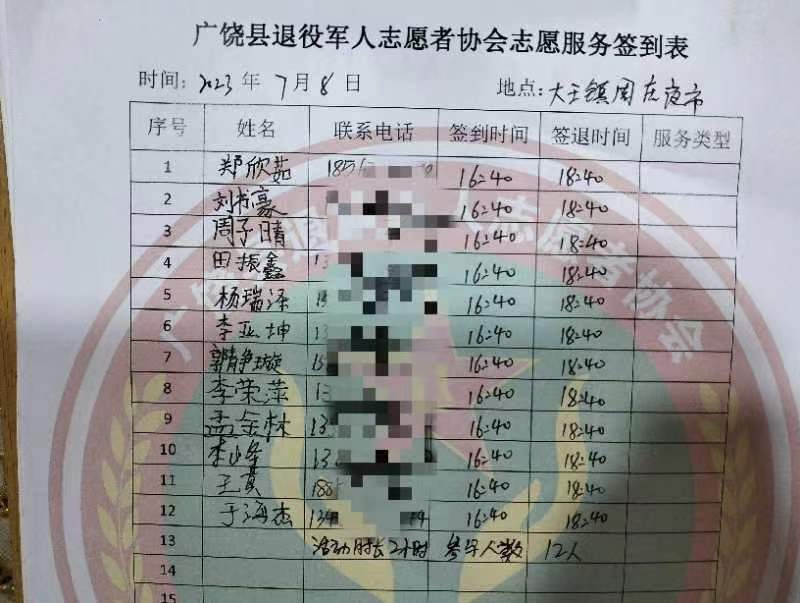 广饶县退役军人志愿者协会志愿服务签到表
时间: 2023 年 7 月 8 日 地点: 大王镇周庄夜市
序号 姓名 联系电话 签到时间 签退时间 服务类型
1 郑欣茹 185 16:40 18:40
2 刘书豪 16:40 18:40
3 周子晴 16:40 18:40
4 田振鑫 13 16:40 18:40
5 杨瑞泽 16:40 18:40
6 李亚坤 13 16:40 18:40
7 郭静璇 15 16:40 18:40
8 李荣萍 13 16:40 18:40
9 孟金林 13 16:40 18:40
10 李峰 13 16:40 18:40
11 王真 188 16:40 18:40
12 于海杰 134 16:40 18:40
13 活动时长2小时 参与人数 12人
14
15